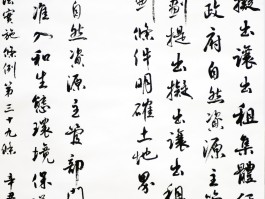 擬出讓出租集體
政府自然資源主管
劃提出擬出讓出租
劃條件明確土地界
自然資源主管部門
准入和生態環境保
實施條例第三十九條 辛